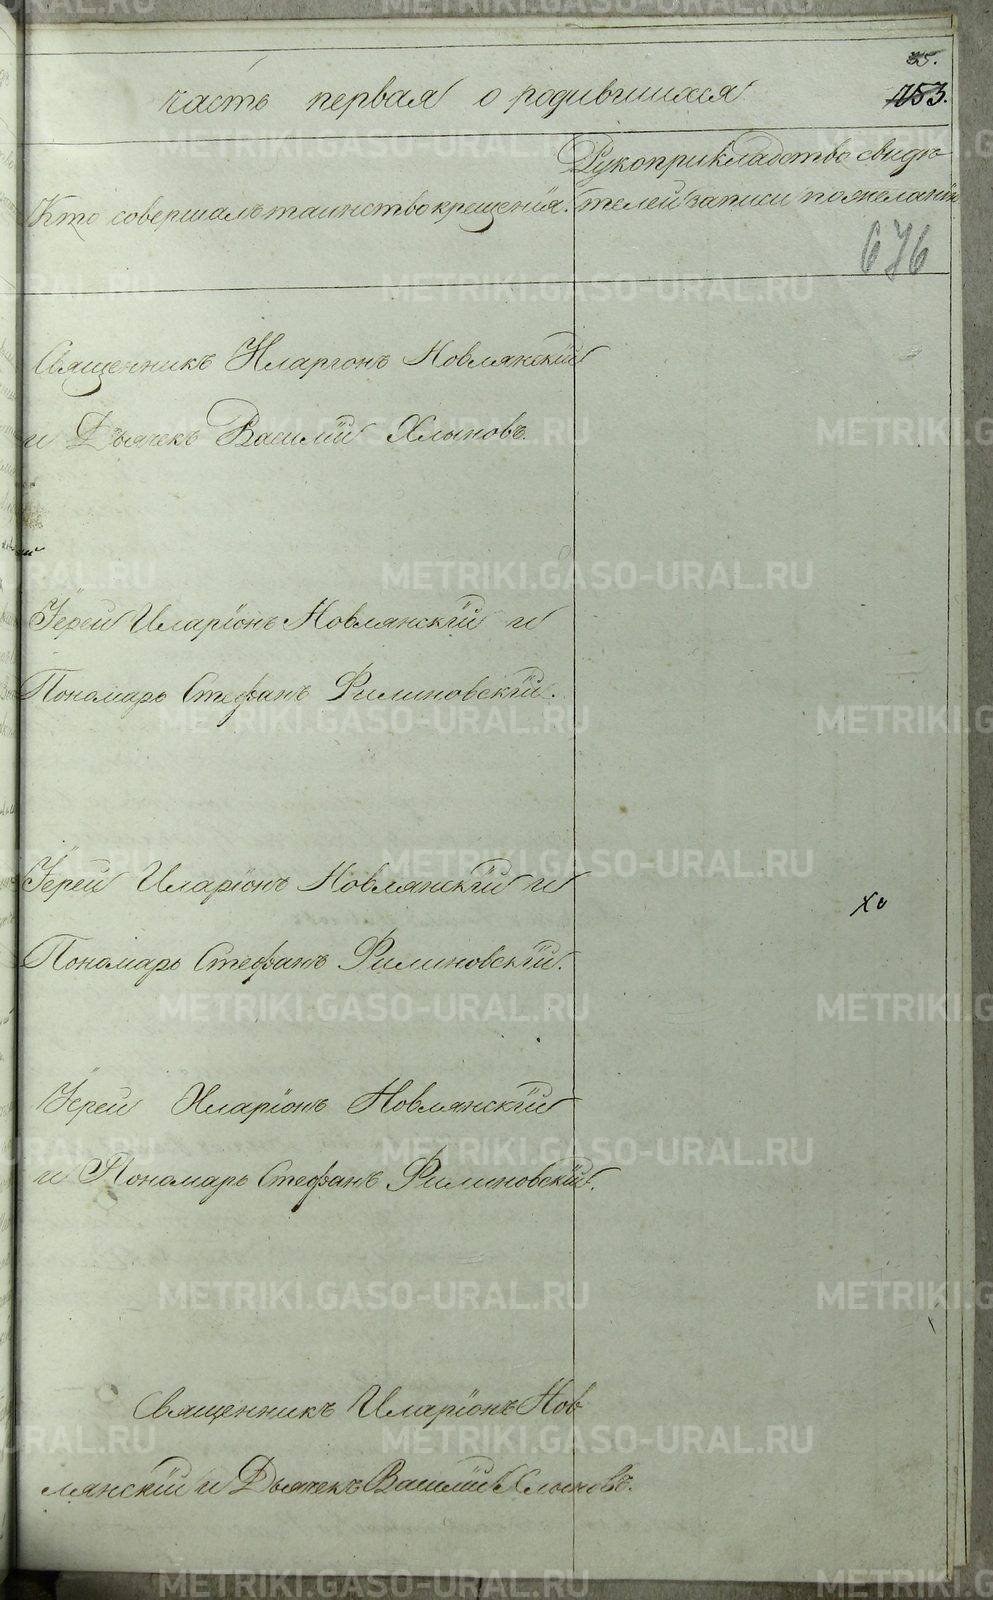 35.
153.
часть первая о родившихся
Кто совершалъ таинство крещенія.
Рукоприкладство свидѣ-
телей записи по желанію
676
Священникъ Иларіонъ Новлянскій
и Дьячекъ Василій Хлыновъ.
Іерей Иларіонъ Новлянскій и
Пономарь Стефанъ Филиновскій.
Іерей Иларіонъ Новлянскій и
Пономарь Стефанъ Филиновскій.
Іерей Иларіонъ Новлянскій
и Пономарь Стефанъ Филиновскій.
Священникъ Иларіонъ Нов
лянскій и Дьячекъ Василій Хлыновъ.
METRIKI.GASO-URAL.RU